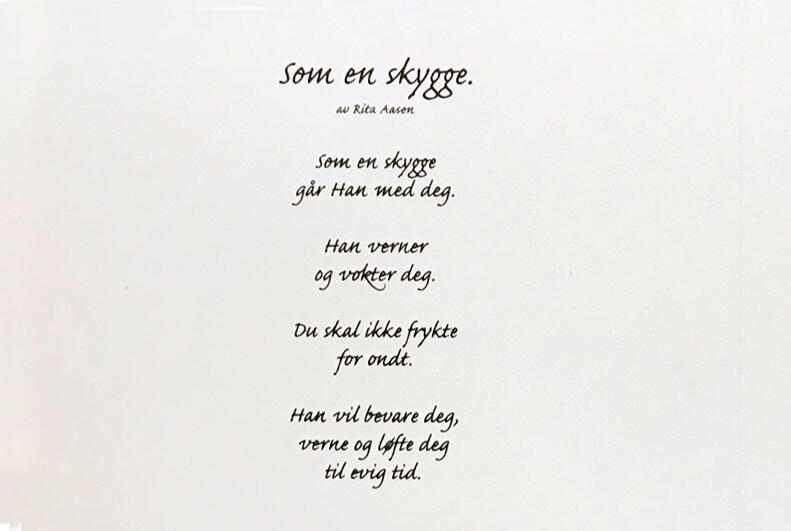 Som en skygge.
av Rita Aasen
Som en skygge
går Han med deg.
Han verner
og vokter deg.
Du skal ikke frykte
for ondt.
Han vil bevare deg,
verne og løfte deg
til evig tid.